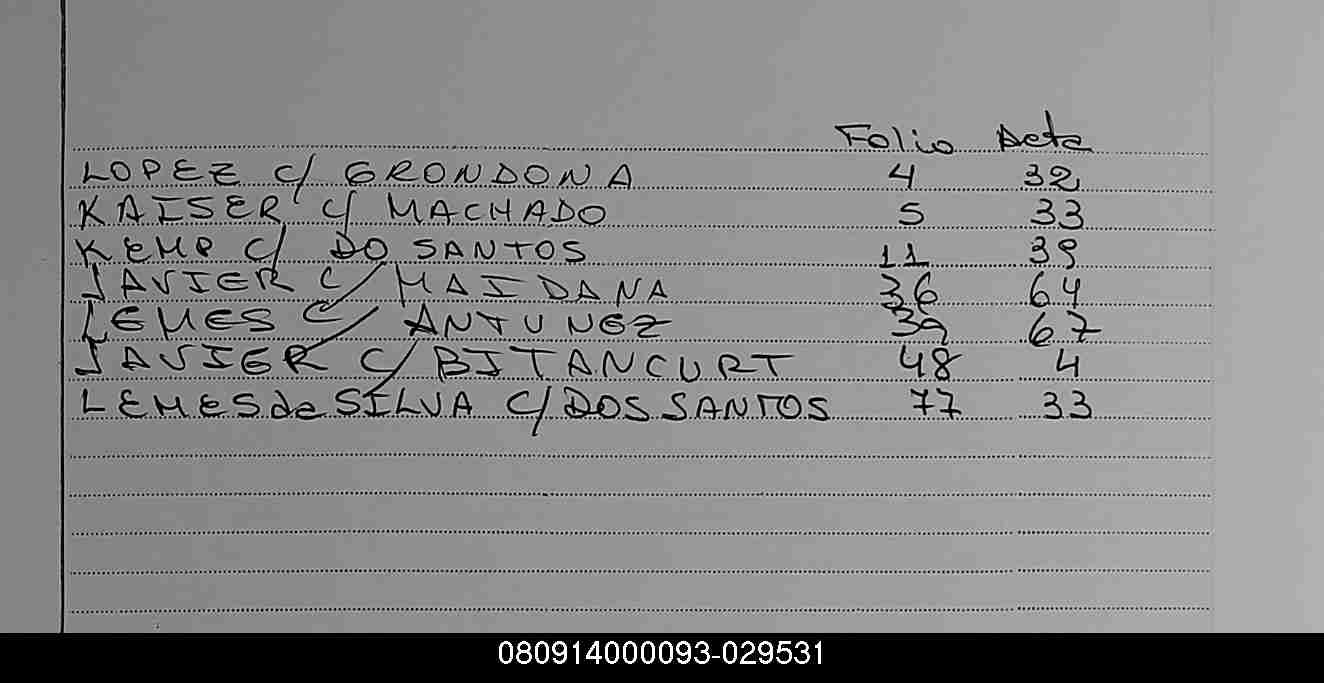 Folio Acta
LOPEZ c/ GRONDONA 4 32
KAISER c/ MACHADO 5 33
KEMP c/ DO SANTOS 11 39
JAVIER c/ MAIDANA 36 64
LEMES c/ ANTUNEZ 39 67
JAVIER c/ BITANCURT 48 4
LEMES de SILVA c/ DOS SANTOS 77 33
080914000093-029531